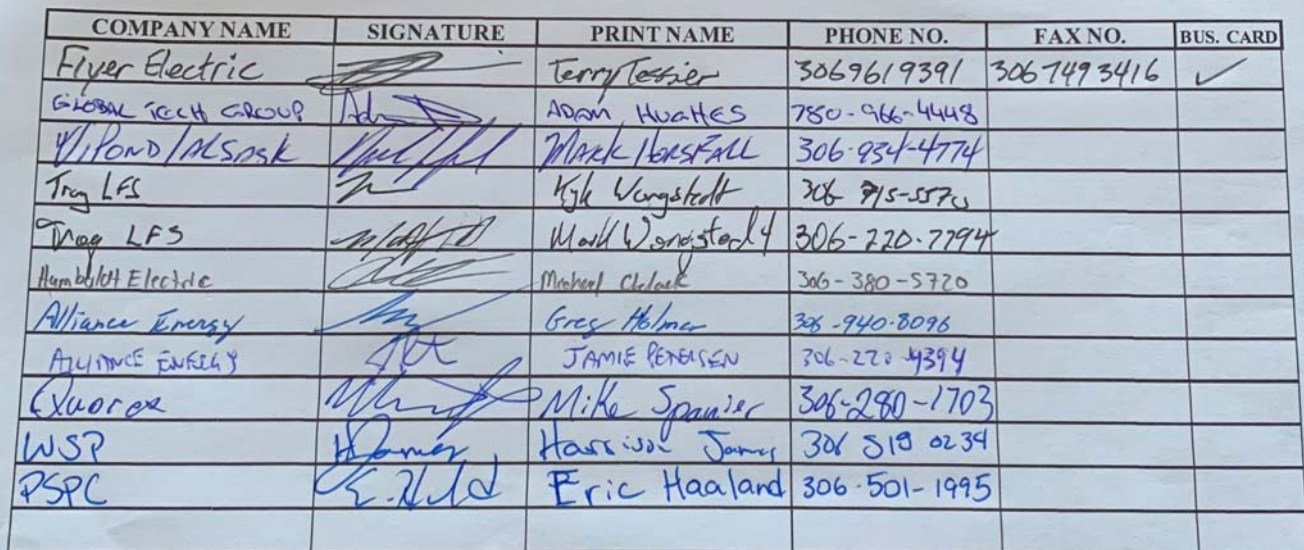 COMPANY NAME SIGNATURE PRINT NAME PHONE NO. FAX NO. BUS. CARD
Flyer Electric Terry Tessier 3069619391 3067493416 ✓
GLOBAL TECH GROUP ADAM HUGHES 780-966-4448
MARK HORSFALL 306-934-4774
Troy LFS Kyle 306
LFS Mark 306-220-7794
Humboldt Electric 306-380-5720
Alliance Energy Greg Holmer 306-940-8096
ALLIANCE ENERGY JAMIE PETERSEN 306-220-4394
Quorex Mike Spanier 306-280-1703
WSP Harrison James 306 519 0234
PSPC Eric Haaland 306-501-1995